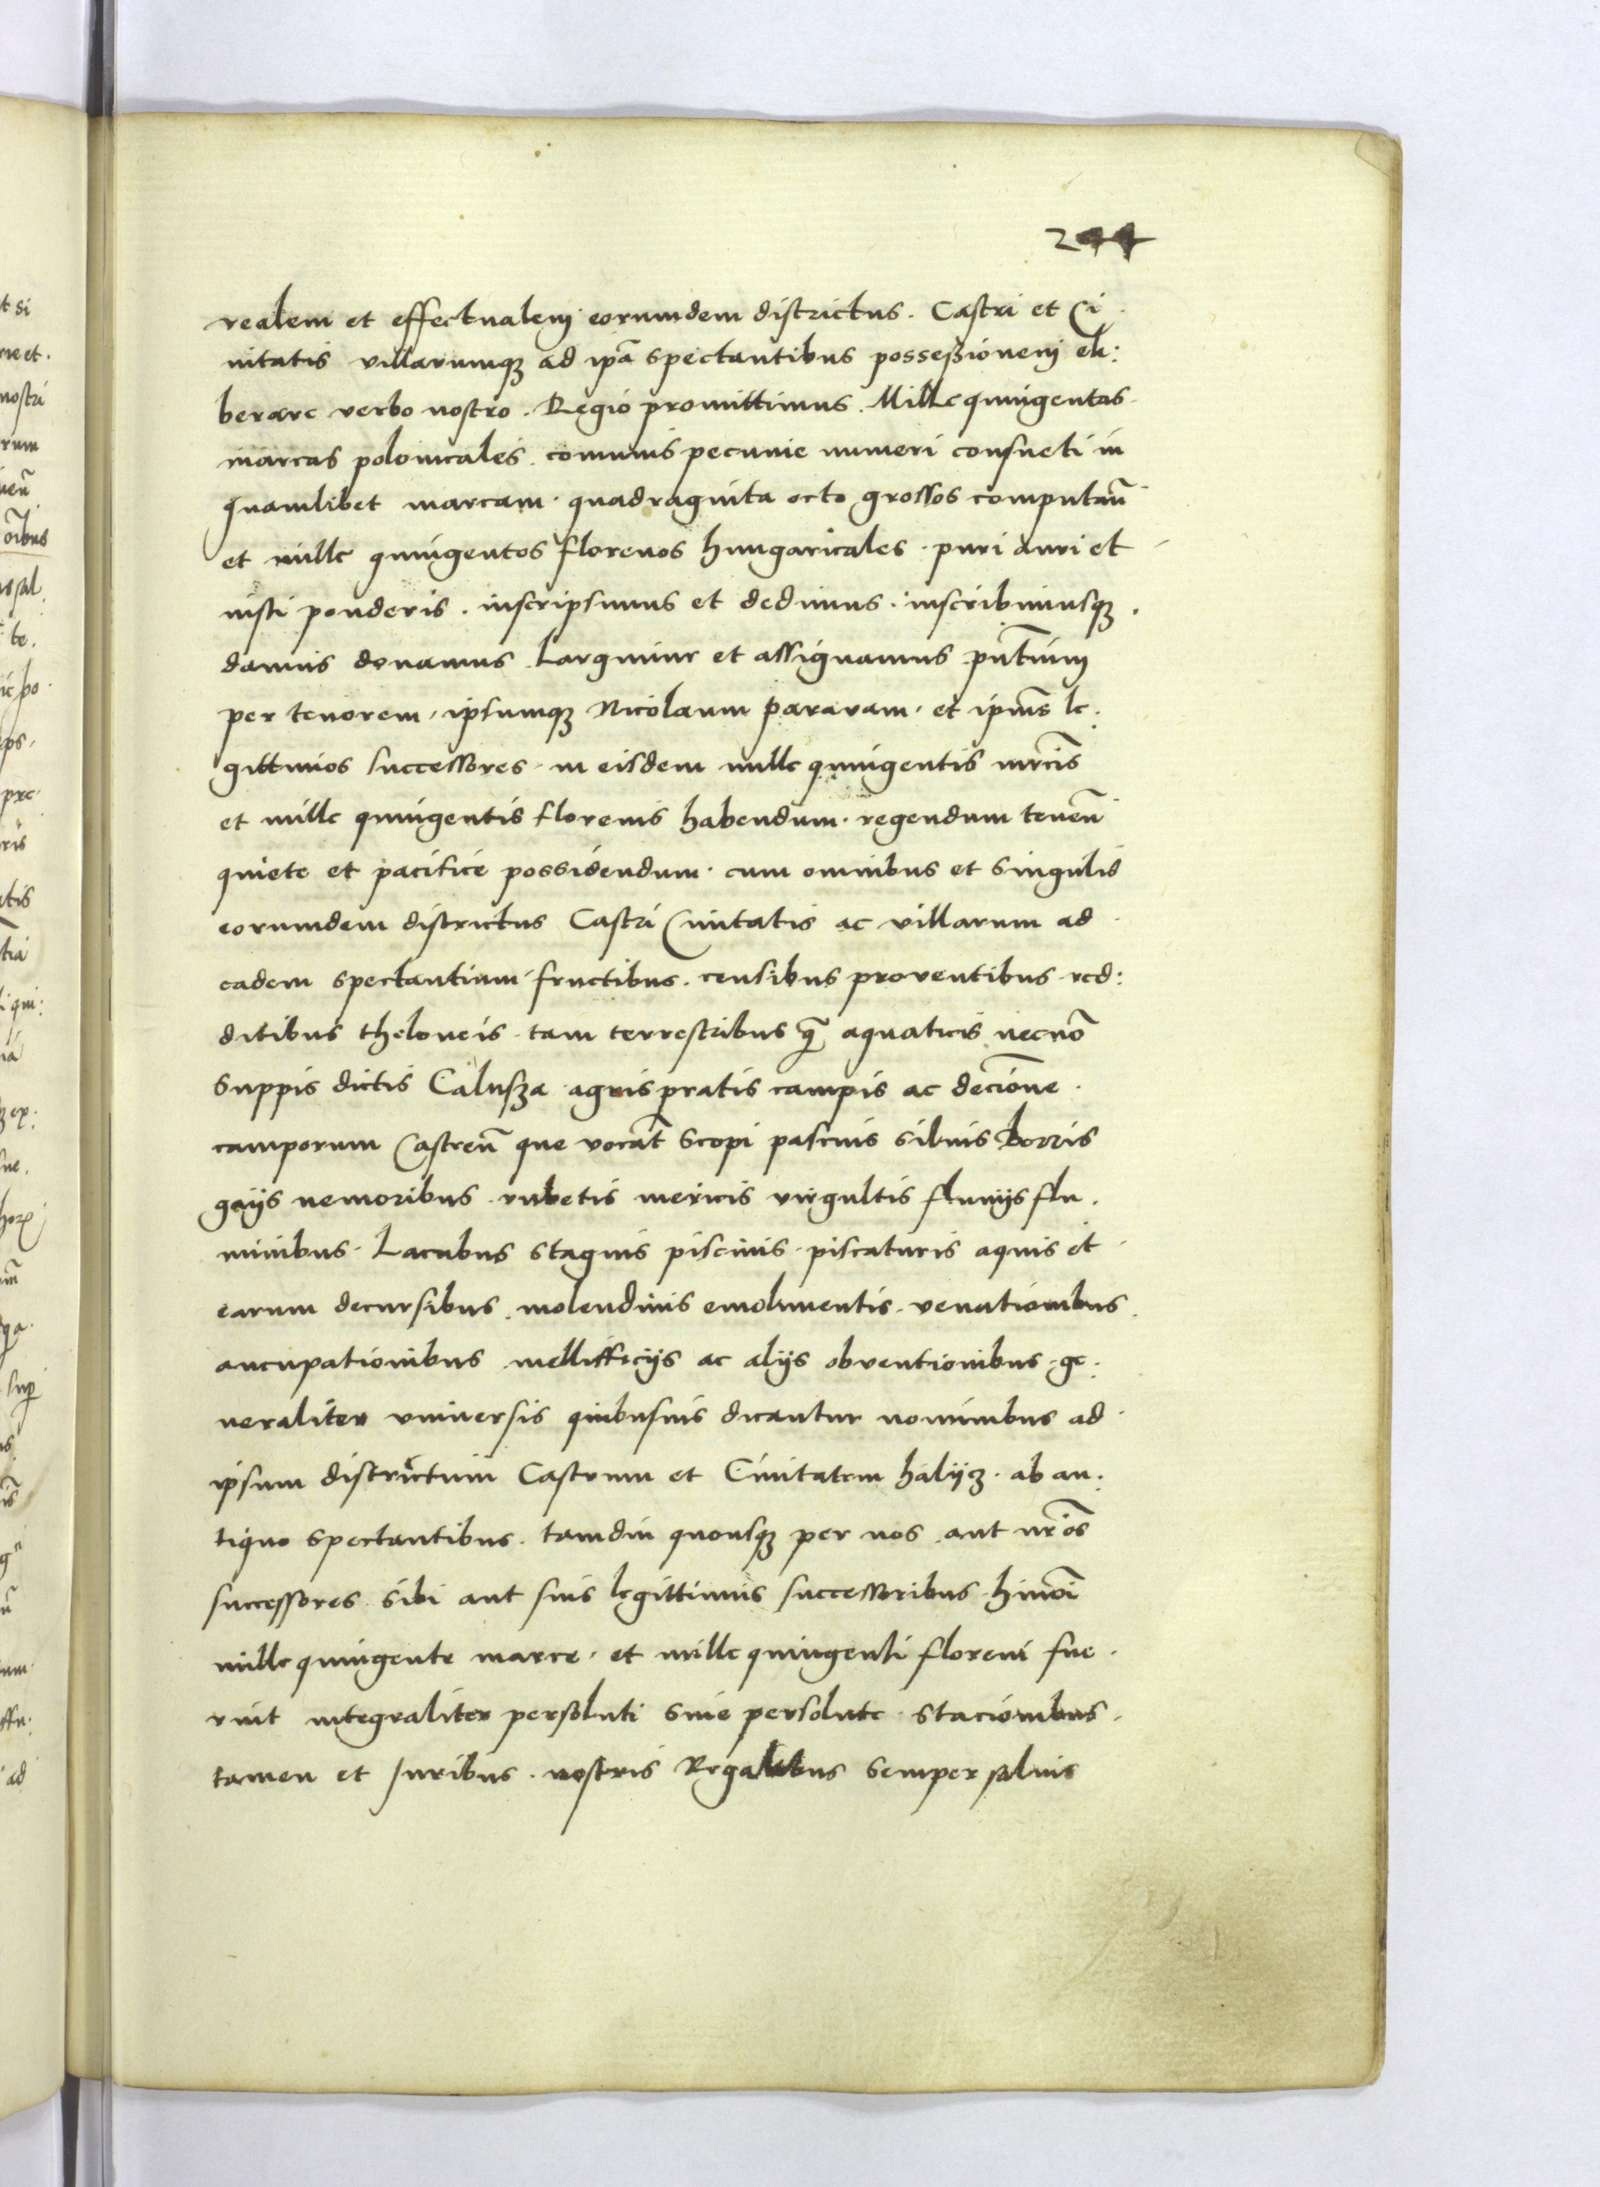 244
realem et effectualem eorumdem districtus. Castri et Ci
uitatis villarumqꝫ ad ipā spectantibus possessionem eli:
berare verbo nostro. Regio promittimus. Mille quingentas
marcas polonicales. comunis pecunie numeri consueti in
quamlibet marcam. quadraginta octo grossos computañ
et mille quingentos florenos hungaricales. puri auri et
iusti ponderis. inscripsimus et dedimus. inscribimusqꝫ.
damus donamus Largimur et assignamus pñtium
per tenorem, ipsumqꝫ Nicolaum paravam, et ipius le:
gittimos successores. in eisdem mille quingentis mrcis
et mille quingentis florenis habendum. regendum teneñ
quiete et pacifice possidendum. cum omnibus et singulis
eorumdem districtus Castri Ciuitatis ac villarum ad
eadem spectantium fructibus. censibus proventibus red:
ditibus theloneis. tam terrestribus q̃ aquaticis necnō
Suppis dictis Calusza agris pratis campis ac decione.
camporum Castreñ que vocāt Scopi pascuis siluis borris
gaijs nemoribus. rubetis mericis virgultis fluuijs flu.
minibus. Lacubus stagnis piscinis. piscaturis aquis et
earum decursibus. molendinis emolumentis. venationibus.
aucupationibus mellifficijs ac alijs obventionibus. ge:
neraliter vniuersis quibusuis dicantur nominibus ad
ipsum districtum Castrum et Ciuitatem halijcz. ab an:
tiquo spectantibus. tamdiu quousqꝫ per nos aut nr̄os
successores sibi aut suis legittimis successoribus hmōi
mille quingente marce. et mille quingenti floreni fue.
rint integraliter persoluti siue persolute stacionibus.
tamen et Juribus. nostris Regalibus semper saluis